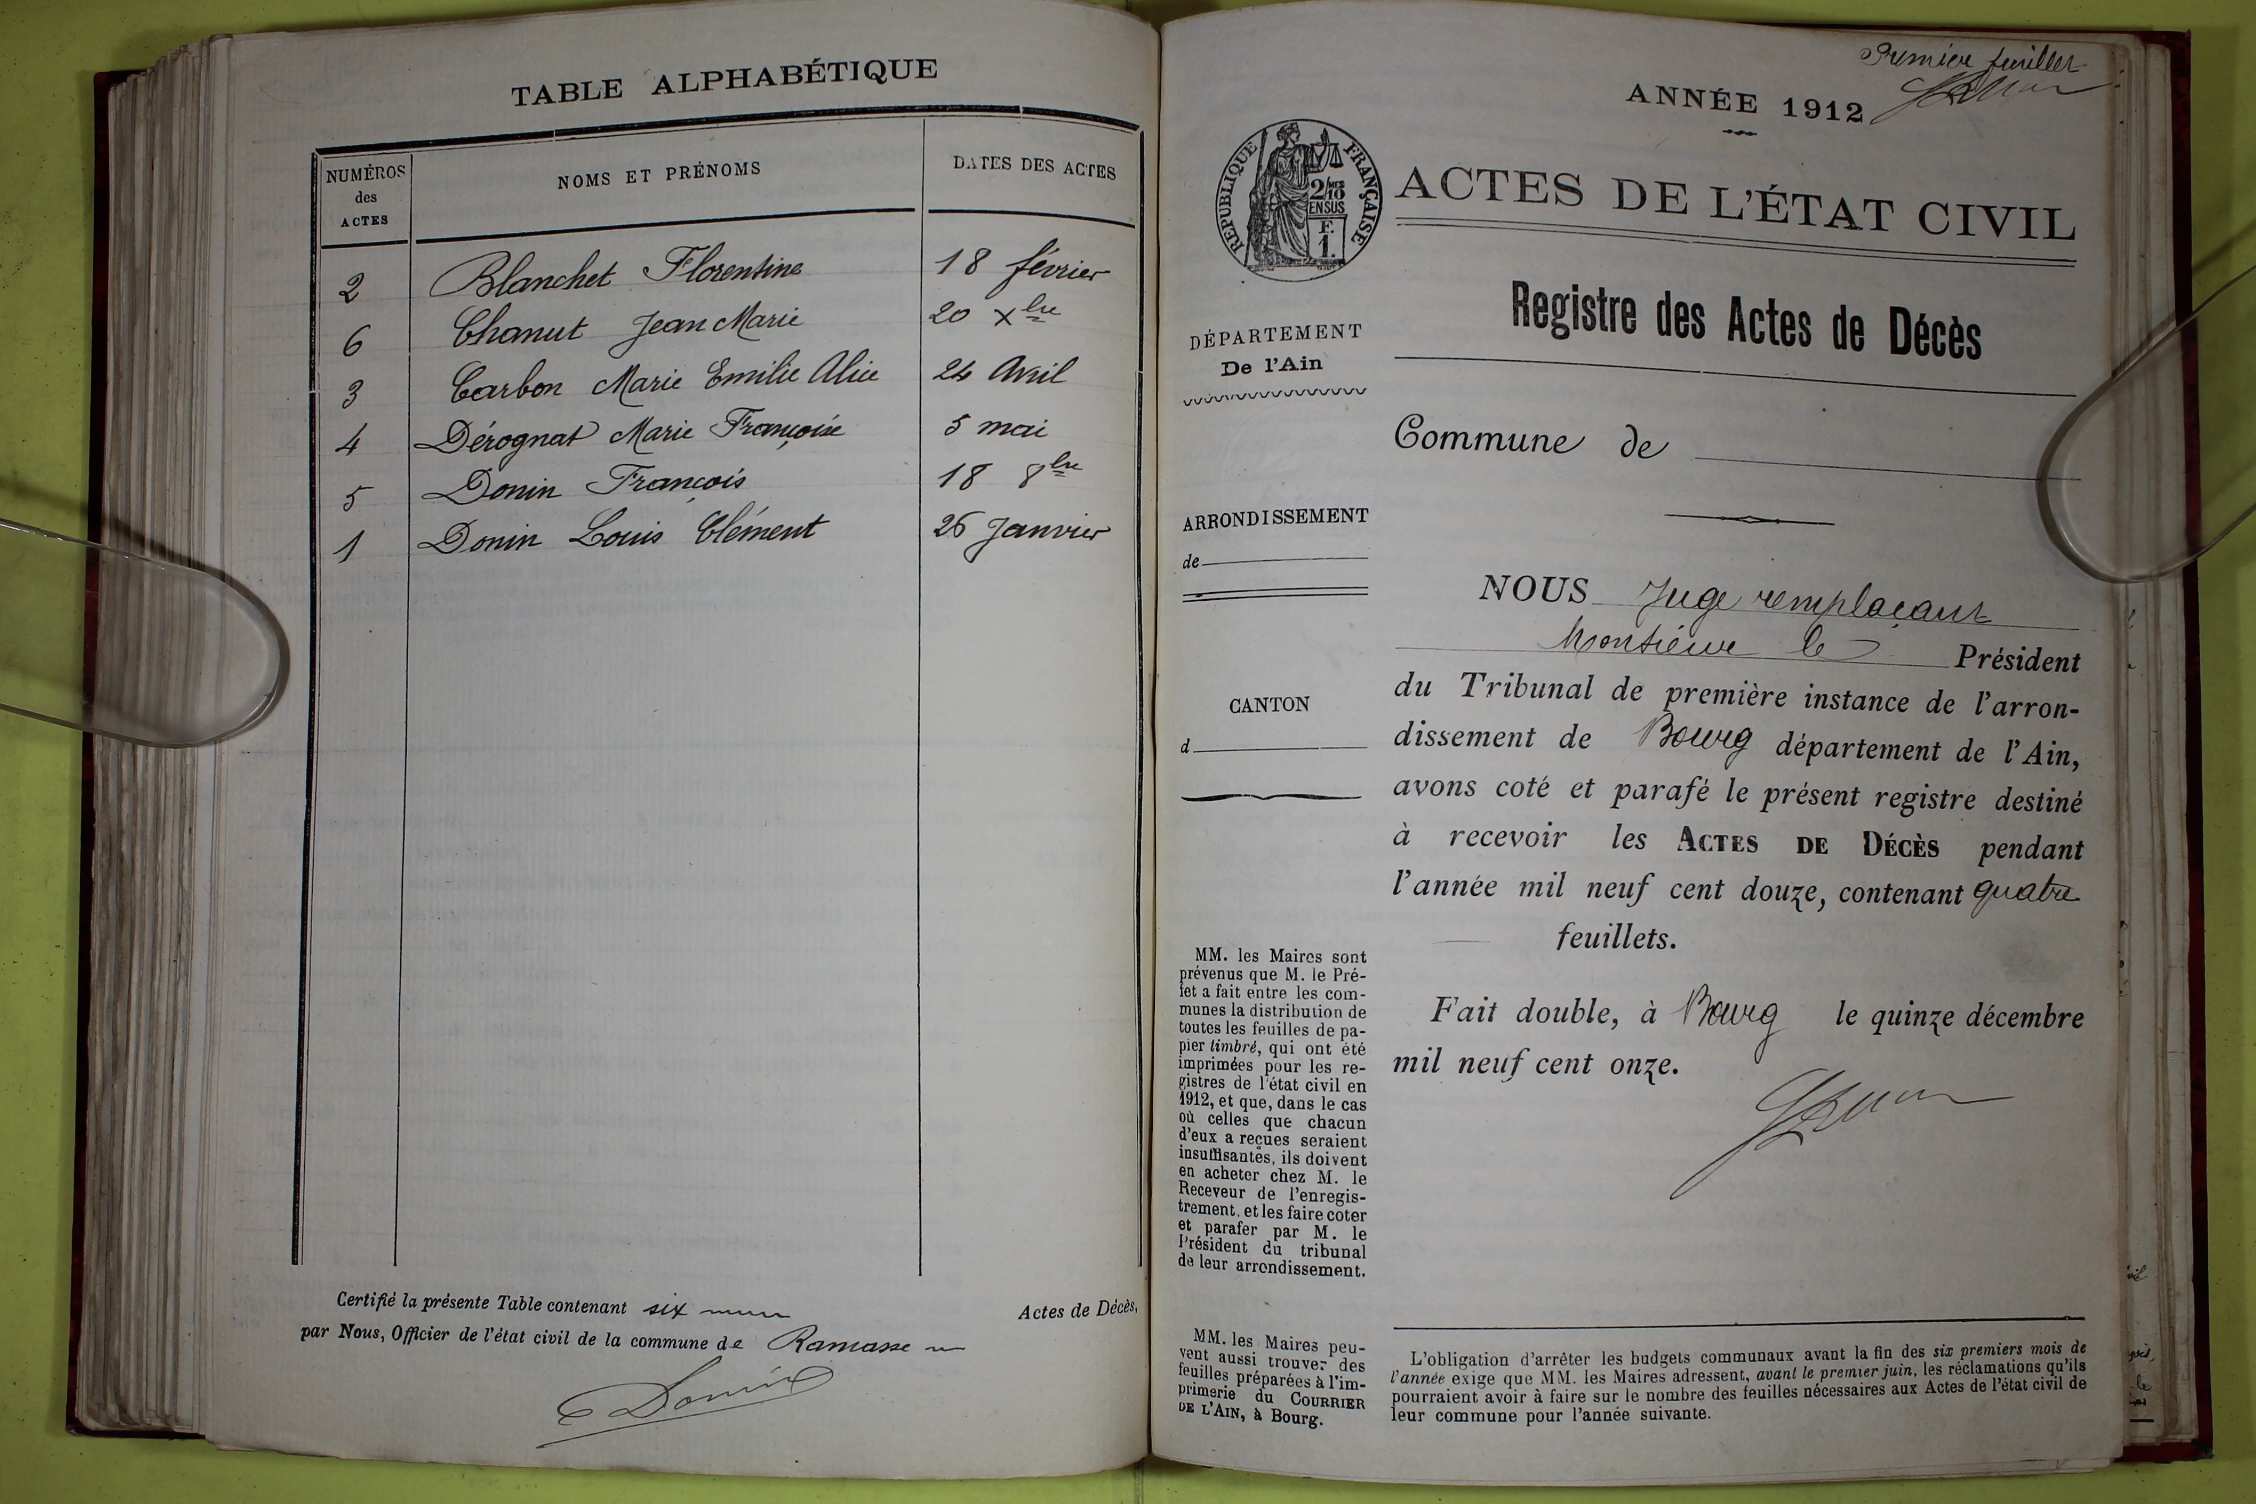 TABLE ALPHABÉTIQUE
NUMÉROS
des
ACTES
NOMS ET PRÉNOMS
DATES DES ACTES
2 Blanchet Florentine 18 février
6 Chanut Jean Marie 20 Xbre
3 Carbon Marie Emilie Alice 24 Avril
4 Dérognat Marie Françoise 5 mai
5 Donin François 18 8bre
1 Donin Louis Clément 26 Janvier
Certifié la présente Table contenant six Actes de Décès,
par Nous, Officier de l'état civil de la commune de Ramasse
Donin
Premier feuillet
ANNÉE 1912
RÉPUBLIQUE FRANÇAISE
2/10 MES
EN SUS
F.
1.
ACTES DE L'ÉTAT CIVIL
Registre des Actes de Décès
DÉPARTEMENT
De l'Ain
Commune de
ARRONDISSEMENT
de
CANTON
d
NOUS Juge remplaçant
Monsieur le Président
du Tribunal de première instance de l'arron-
dissement de Bourg département de l'Ain,
avons coté et parafé le présent registre destiné
à recevoir les ACTES DE DÉCÈS pendant
l'année mil neuf cent douze, contenant quatre
feuillets.
Fait double, à Bourg le quinze décembre
mil neuf cent onze.
MM. les Maires sont
prévenus que M. le Pré-
fet a fait entre les com-
munes la distribution de
toutes les feuilles de pa-
pier timbré, qui ont été
imprimées pour les re-
gistres de l'état civil en
1912, et que, dans le cas
où celles que chacun
d'eux a reçues seraient
insuffisantes, ils doivent
en acheter chez M. le
Receveur de l'enregis-
trement, et les faire coter
et parafer par M. le
Président du tribunal
de leur arrondissement.
MM. les Maires peu-
vent aussi trouver des
feuilles préparées à l'im-
primerie du COURRIER
DE L'AIN, à Bourg.
L'obligation d'arrêter les budgets communaux avant la fin des six premiers mois de
l'année exige que MM. les Maires adressent, avant le premier juin, les réclamations qu'ils
pourraient avoir à faire sur le nombre des feuilles nécessaires aux Actes de l'état civil de
leur commune pour l'année suivante.